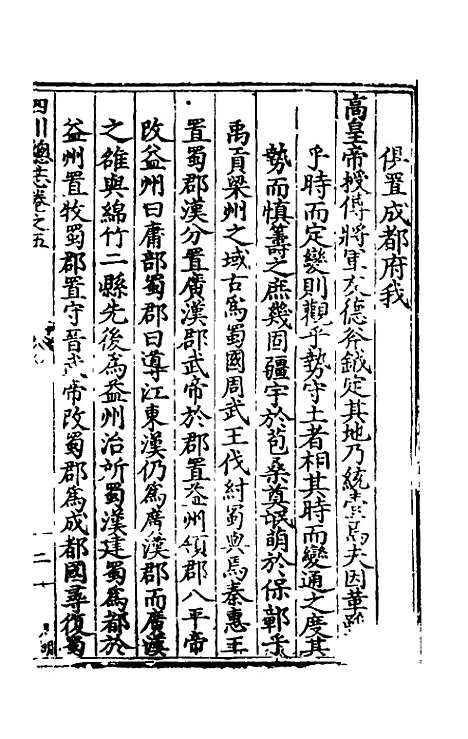 俱置成都府我
高皇帝授傅將軍友德斧鉞定其地乃統焉夫因革
乎時而定變則觀乎勢守土者相其時而變通之度其
勢而慎籌之庶幾固疆宇於苞桑奠氓萌於保鄣乎
禹貢梁州之域古爲蜀國周武王伐紂蜀與焉秦惠王
置蜀郡漢分置廣漢郡武帝於郡置益州領郡八平帝
改益州曰庸部蜀郡曰導江東漢仍爲廣漢郡而廣漢
之雒與綿竹二縣先後爲益州治所蜀漢建蜀爲都於
益州置牧蜀郡置守晉武帝改蜀郡爲成都國尋復蜀
四川總志卷之五
二十